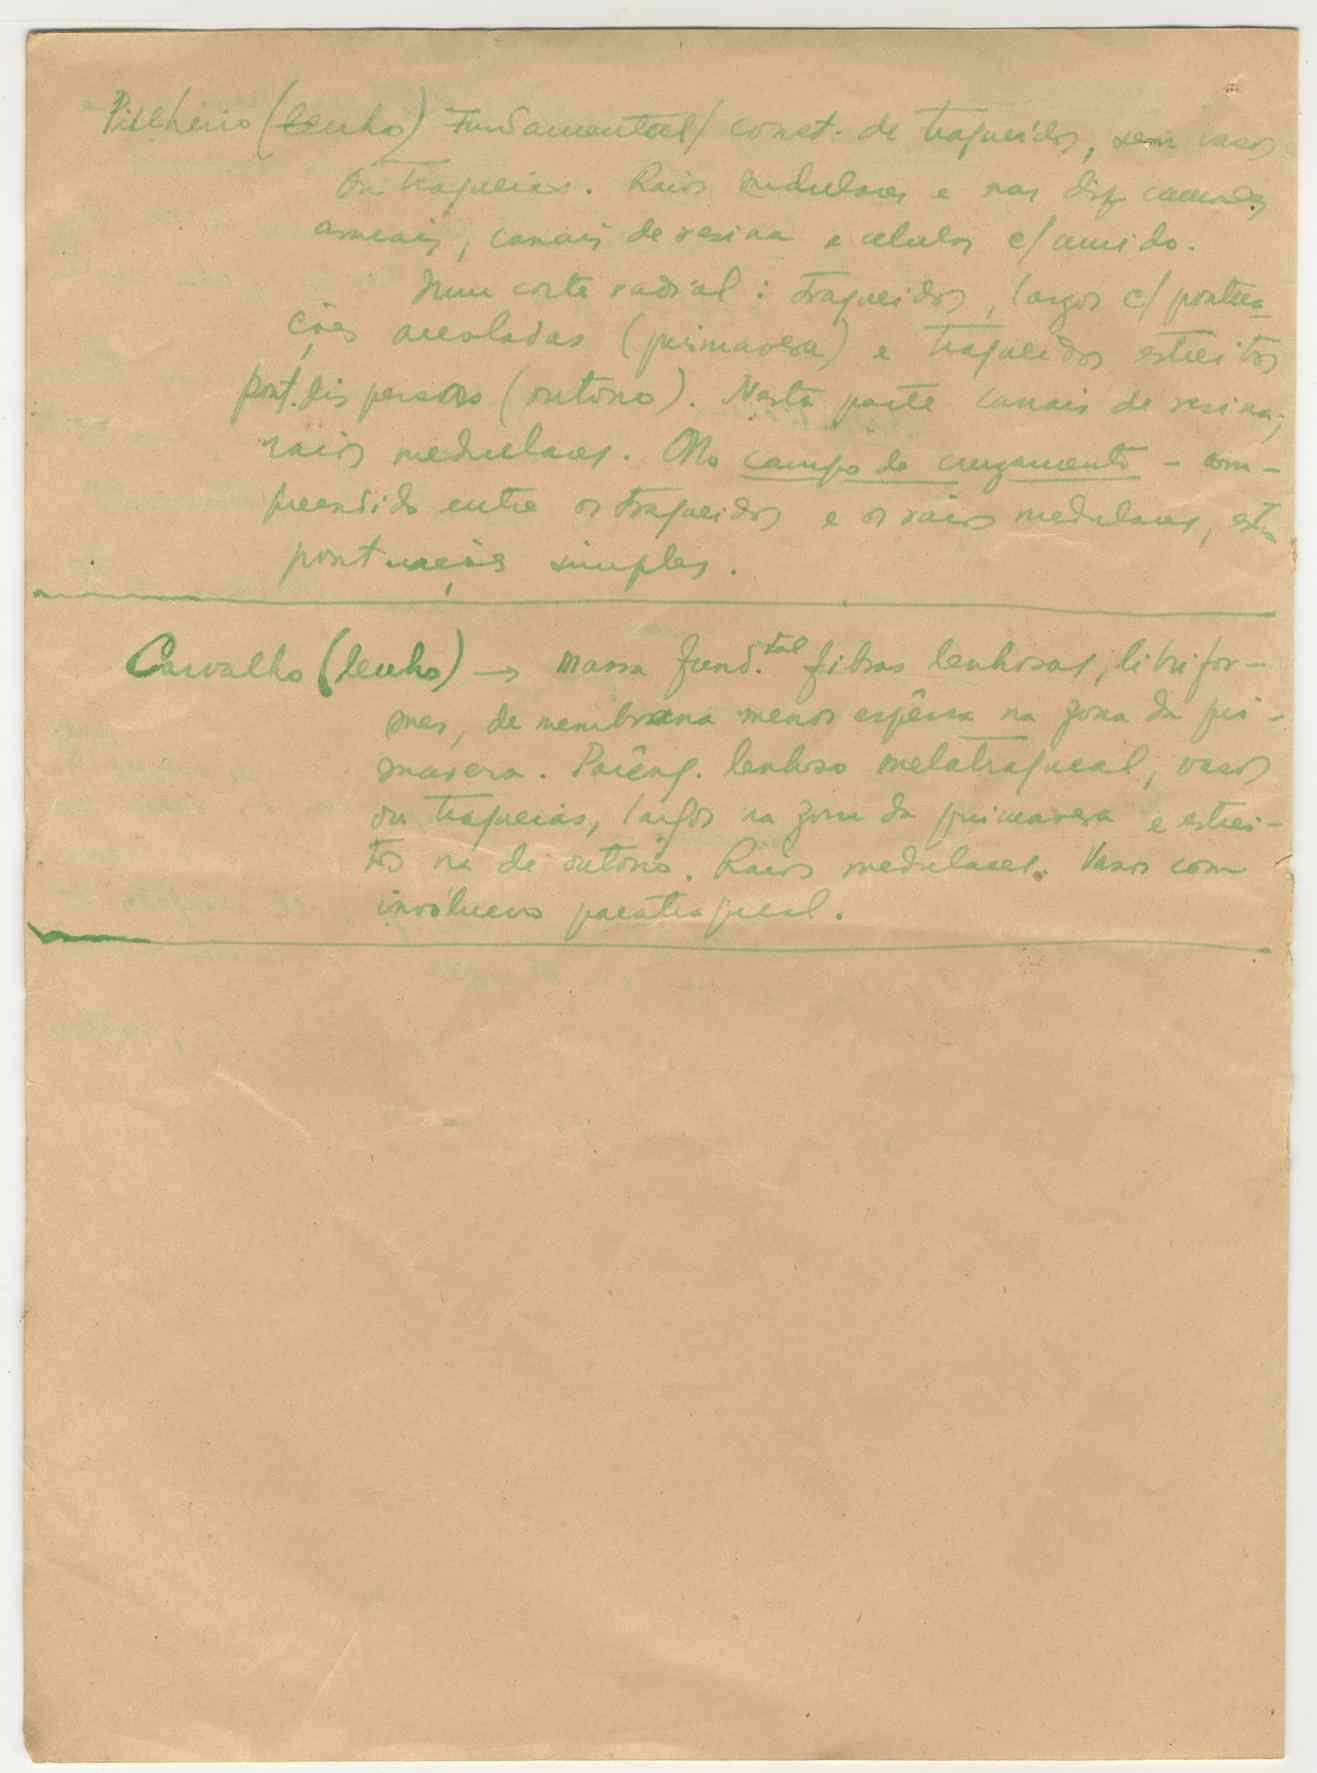 Pinheiro (lenho) Fundamental/ const. de traqueidos, sem vasos
ou traqueias. Raios medulares e nas dif. camadas
anuais, canais de resina e celulas c/ amido.
Num corte radial: traqueidos, largos c/ pontua
ções aureoladas (primavera) e traqueidos estreitos
pont. dispersas (outono). Nesta parte canais de resina;
raios medulares. No campo de cruzamento - com-
preendido entre os traqueidos e os raios medulares, estão
pontuações simples.
Carvalho (lenho) → massa fund.tal fibras lenhosas, librifor-
mes, de membrana menos espêssa na zona da pri-
mavera. Parênq. lenhoso metatraqueal, vasos
ou traqueias, largos na zona da primavera e estrei-
tos na de outono. Raios medulares. Vasos com
invólucro paratraqueal.